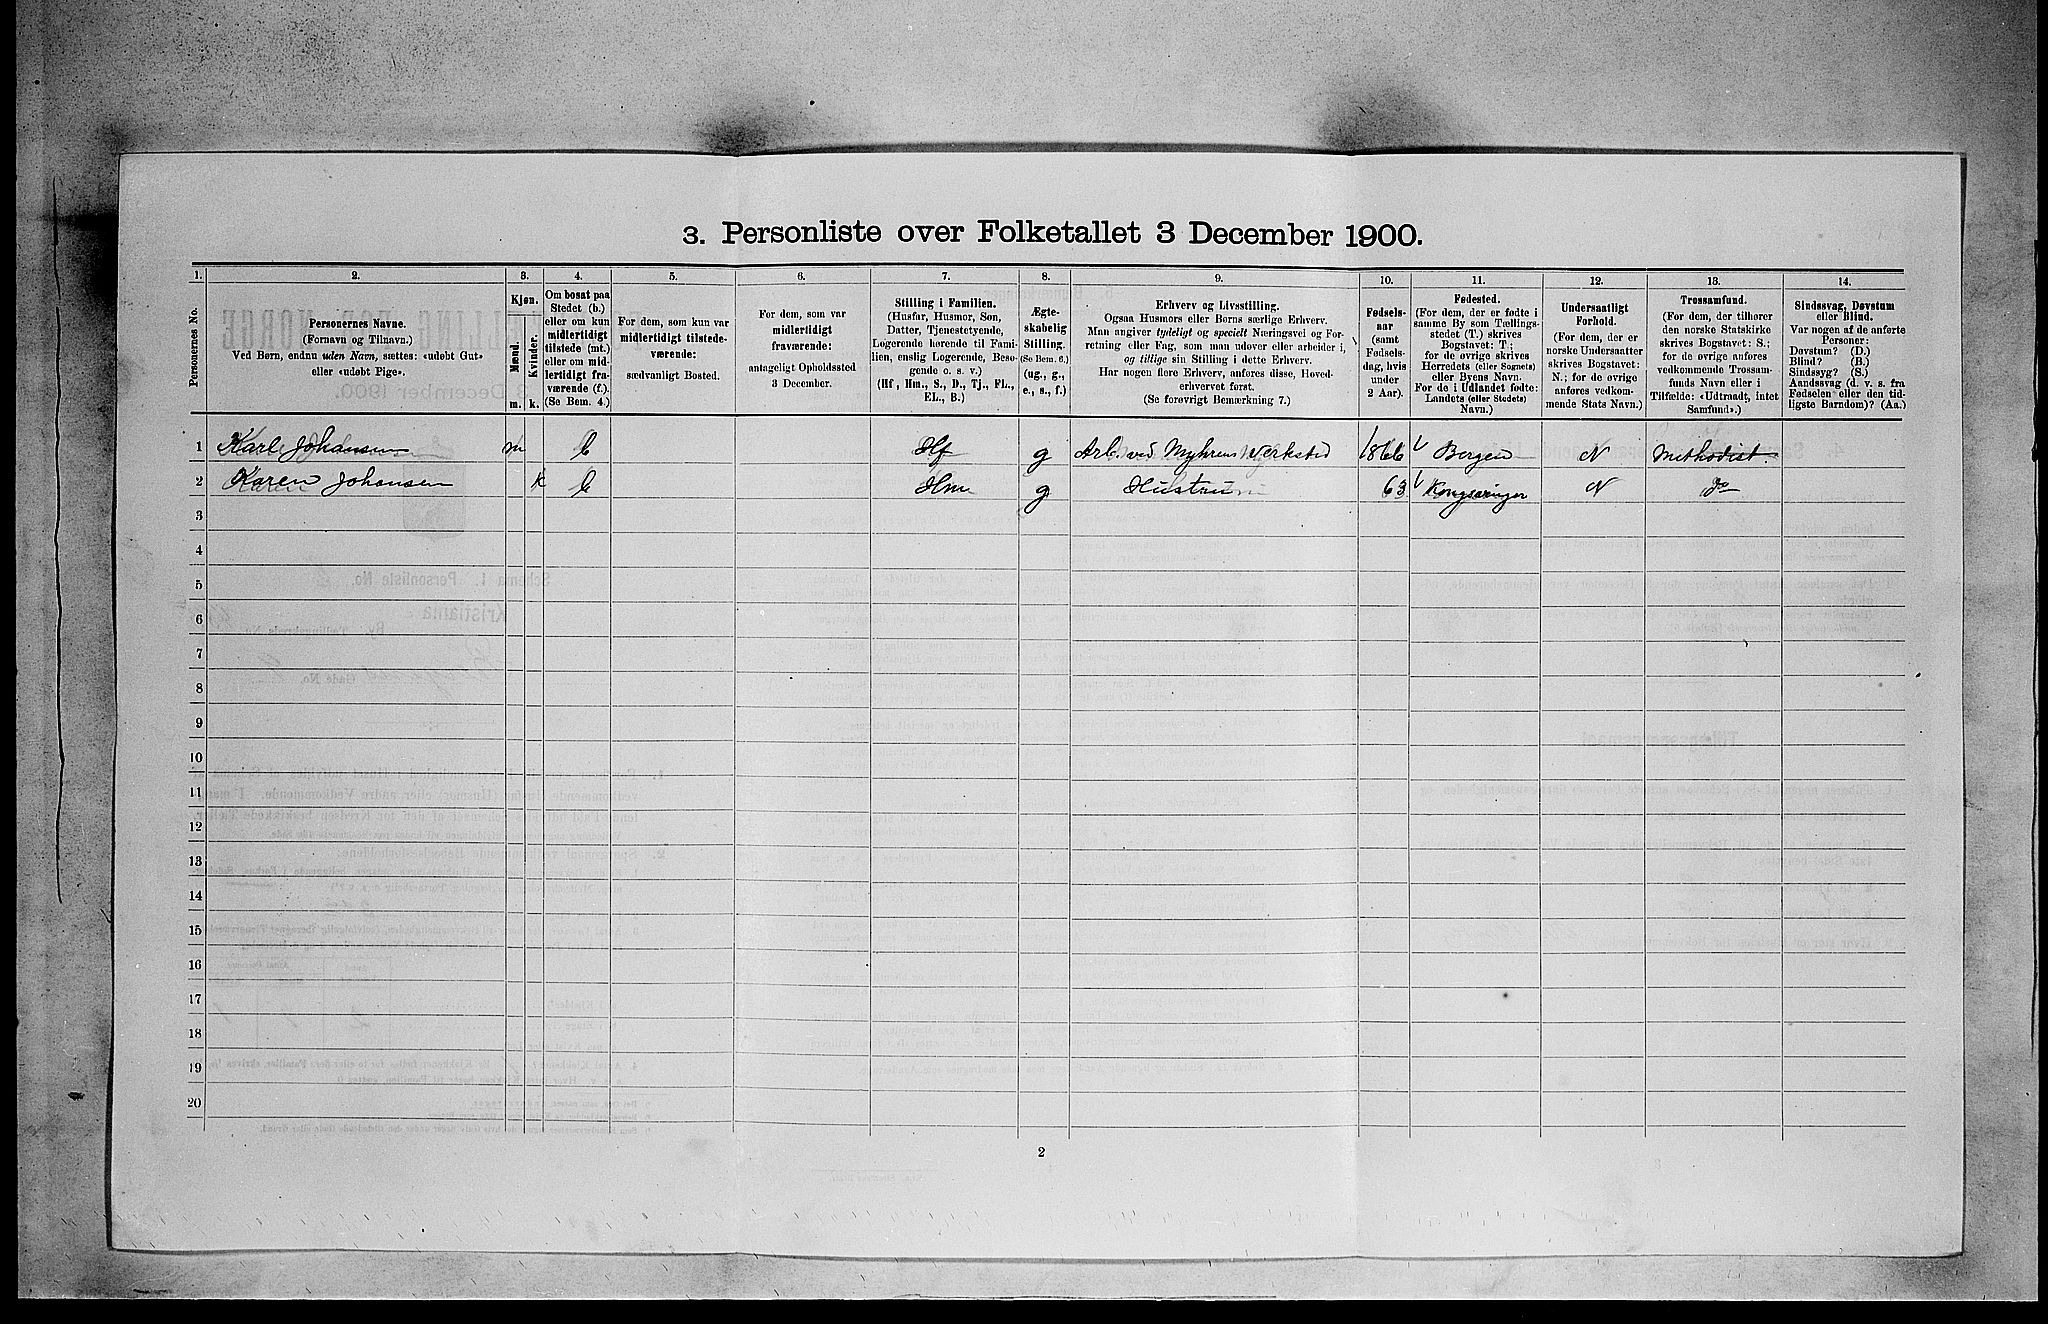 3. Personliste over Folketallet 3 December 1900.
1. 2. 3. 4. 5. 6. 7. 8. 9. 10. 11. 12. 13. 14.
Personernes No.
Personernes Navne.
(Fornavn og Tilnavn.)
Ved Børn, endnu uden Navn, sættes: «udøbt Gut»
eller «udøbt Pige».
Kjøn.
Mænd.
Kvinder.
m. k.
Om bosat paa
Stedet (b.)
eller om kun
midlertidigt
tilstede (mt.)
eller om mid-
lertidigt fra-
værende (f.).
(Se Bem. 4.)
For dem, som kun var
midlertidigt tilstede-
værende:
sædvanligt Bosted.
For dem, som var
midlertidigt
fraværende:
antageligt Opholdssted
3 December.
Stilling i Familien.
(Husfar, Husmor, Søn,
Datter, Tjenestetyende,
Logerende hørende til Fami-
lien, enslig Logerende, Besø-
gende o. s. v.)
(Hf, Hm., S., D., Tj., FL.,
EL., B.)
Ægte-
skabelig
Stilling.
(Se Bem. 6.)
(ug., g.,
e., s., f.)
Erhverv og Livsstilling.
Ogsaa Husmors eller Børns særlige Erhverv.
Man angiver tydeligt og specielt Næringsvei og For-
retning eller Fag, som man udøver eller arbeider i,
og tillige sin Stilling i dette Erhverv.
Har nogen flere Erhverv, anføres disse, Hoved-
erhvervet først.
(Se forøvrigt Bemærkning 7.)
Fødsels-
aar
(samt
Fødsels-
dag, hvis
under
2 Aar).
Fødested.
(For dem, der er fødte i
samme By som Tællings-
stedet (T.) skrives
Bogstavet: T.;
for de øvrige skrives
Herredets (eller Sognets)
eller Byens Navn.
For de i Udlandet fødte:
Landets (eller Stedets)
Navn.)
Undersaatligt
Forhold.
(For dem, der er
norske Undersaatter
skrives Bogstavet:
N.; for de øvrige
anføres vedkom-
mende Stats Navn.)
Trossamfund.
(For dem, der tilhører
den norske Statskirke
skrives Bogstavet: S.;
for de øvrige anføres
vedkommende Trossam-
funds Navn eller i
Tilfælde: «Udtraadt, intet
Samfund».)
Sindssvag, Døvstum
eller Blind.
Var nogen af de anførte
Personer:
Døvstum? (D.)
Blind? (B.)
Sindssyg? (S.)
Aandssvag (d. v. s. fra
Fødselen eller den tid-
ligste Barndom)? (Aa.)
1 Karl Johansen m b Hf g Arb. ved Myhrens Værksted 1866 Bergen N Methodist.
2 Karen Johansen k b Hm g Hustru 63 Kongsvinger N Do
3
4
5
6
7
8
9
10
11
12
13
14
15
16
17
18
19
20
2